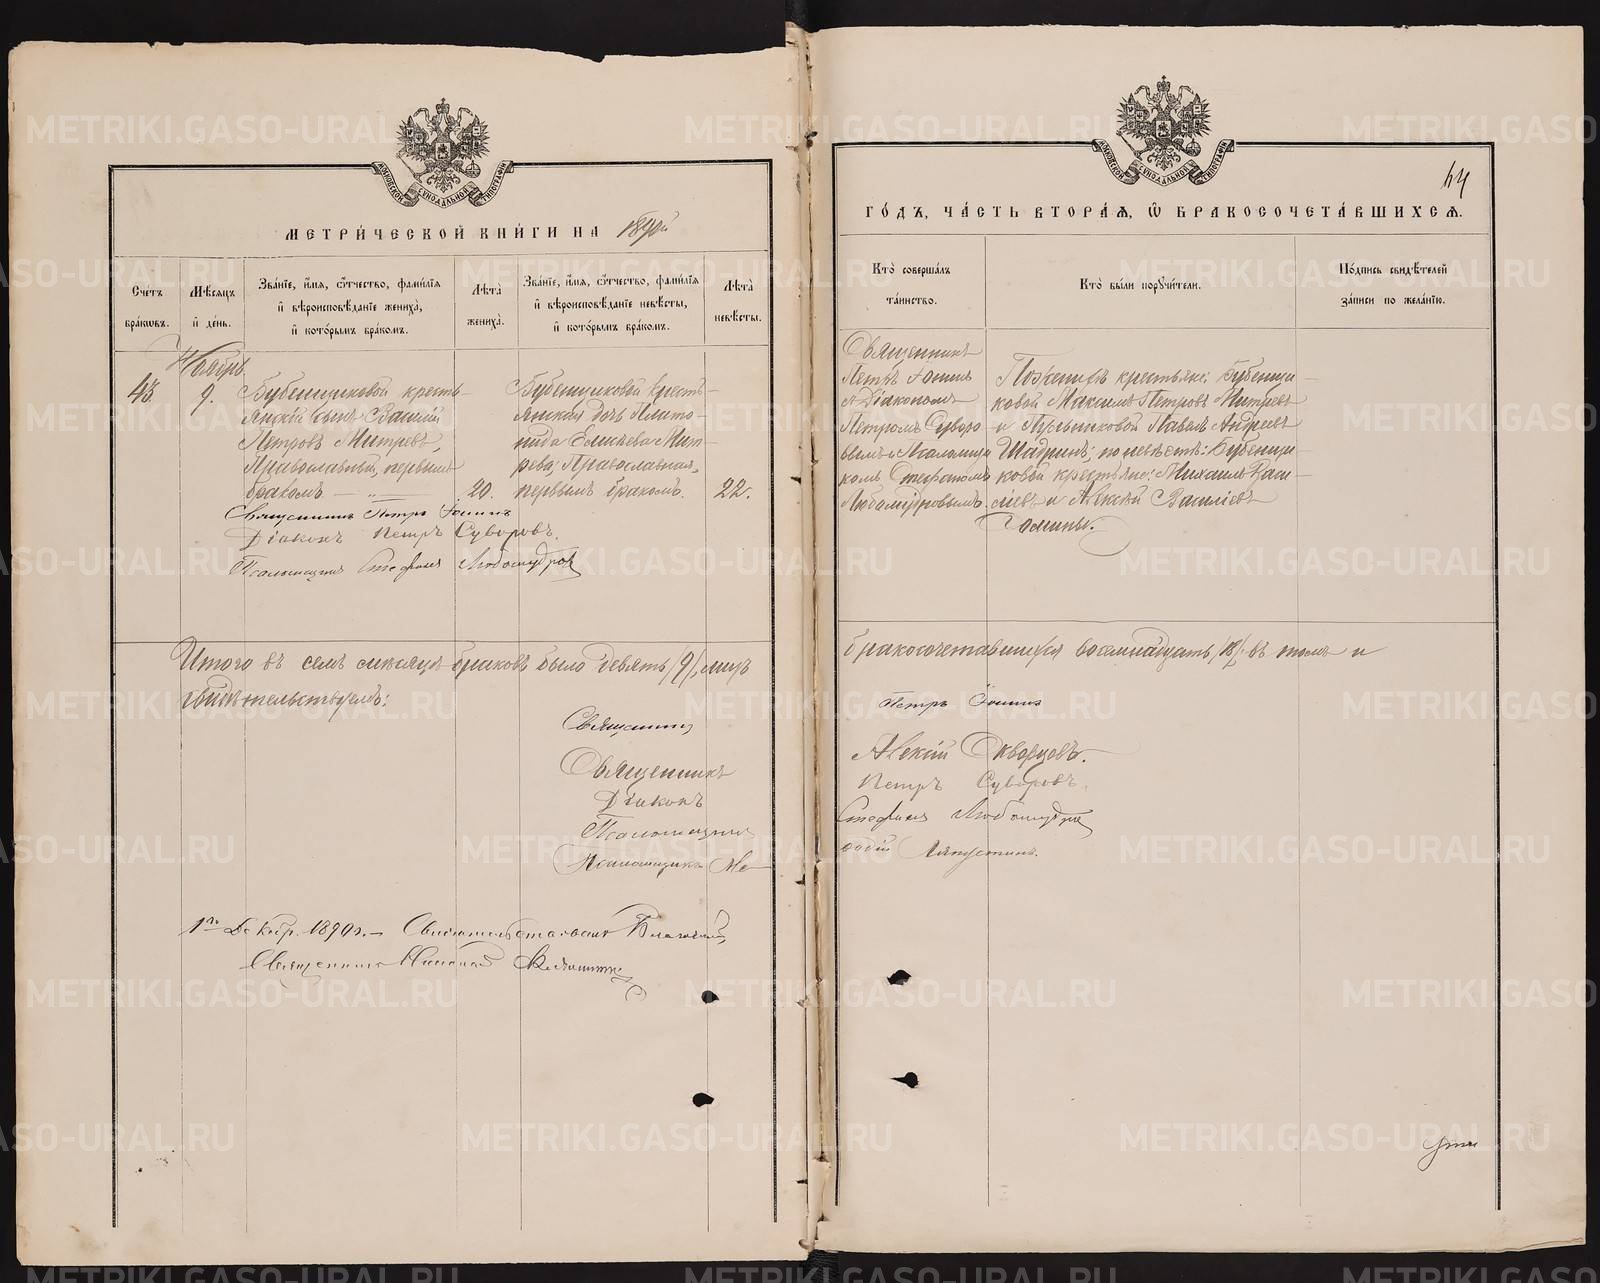 44
МЕТРИ́ЧЕСКОЙ КНИ́ГИ НА 1890й
ГО́ДЪ, ЧА́СТЬ ВТОРА́Я, Ѡ҆ БРАКОСОЧЕТА́ВШИХСЯ.
Сче́тъ бра́ковъ.
Мѣ́сяцъ и҆ де́нь.
Зва́нїе, и҆́мя, о҆́тчество, фами́лїя
и҆ вѣроисповѣ́данїе жениха̀,
и҆ кото́рымъ бра́комъ.
Лѣ́та жениха̀.
Зва́нїе, и҆́мя, о҆́тчество, фами́лїя
и҆ вѣроисповѣ́данїе невѣ́сты,
и҆ кото́рымъ бра́комъ.
Лѣ́та невѣ́сты.
Кто̀ соверша́лъ
та́инство.
Кто̀ бы́ли порꙋчи́тели.
По́дпись свидѣ́телей
за́писи по жела́нїю.
Ноябрь
9.
Бубенщиковой кресть-
янскій сынъ Василій
Петровъ Митревъ,
Православный, первымъ
бракомъ — „ —
20.
Бубенщиковой кресть-
янская дочь Плато-
нида Елисѣева Мит-
рева, Православная,
первымъ бракомъ.
22.
Священникъ
Петръ Іонинъ
съ Діакономъ
Петромъ Суворо
вымъ и Псаломщи
комъ Стефаномъ
Любомудровымъ.
По женихѣ крестьяне: Бубенщи-
ковой Максимъ Петровъ Митревъ
и Пульниковой Павелъ Андреевъ
Шадринъ; по невѣстѣ: Бубенщи-
ковой крестьяне: Михаилъ Васи-
ліевъ и Алексѣй Василіевъ
Іонины.
Священникъ Петръ Іонинъ
Діаконъ Петръ Суворовъ.
Псаломщикъ Стефанъ Любомудров
Итого въ семъ мѣсяцѣ браковъ было девять /9/, лицъ
бракосочетавшихся восемнадцать /18/. въ томъ и
свидѣтельствуемъ:
Священникъ Петръ Іонинъ
Священникъ Алексій Скворцовъ.
Діаконъ Петръ Суворовъ.
Псаломщикъ Стефанъ Любомудров
Псаломщикъ Ме
ѳодій Ляпустинъ.
1го Декбр. 1890 г. — Свидѣтельствовалъ Благочин.
Священникъ Николай
METRIKI.GASO-URAL.RU